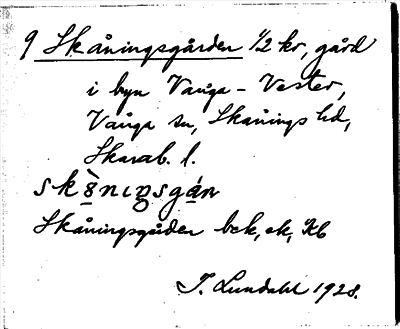 9 Skåningsgården 1/2 kr, gård
i byn Vånga - Vester,
Vånga sn, Skånings hd,
Skarab. l.
Skåningsgården bek, ek, Kb
I. Lundahl 1928.